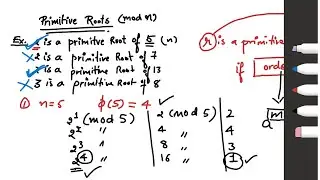 Primitive Roots (mod n)
Ex. 2 is a primitive Root of 5 (n)
2 is a primitive Root of 7
is a primitive Root of 13
3 is a primitive Root of 8
r is a primitive
if order
a m
① n=5 ϕ(5) = 4
2¹ (mod 5) 2 (mod 5) 2
2² " 4 " 4
2³ " 8 " 3
2⁴ " 16 " 1